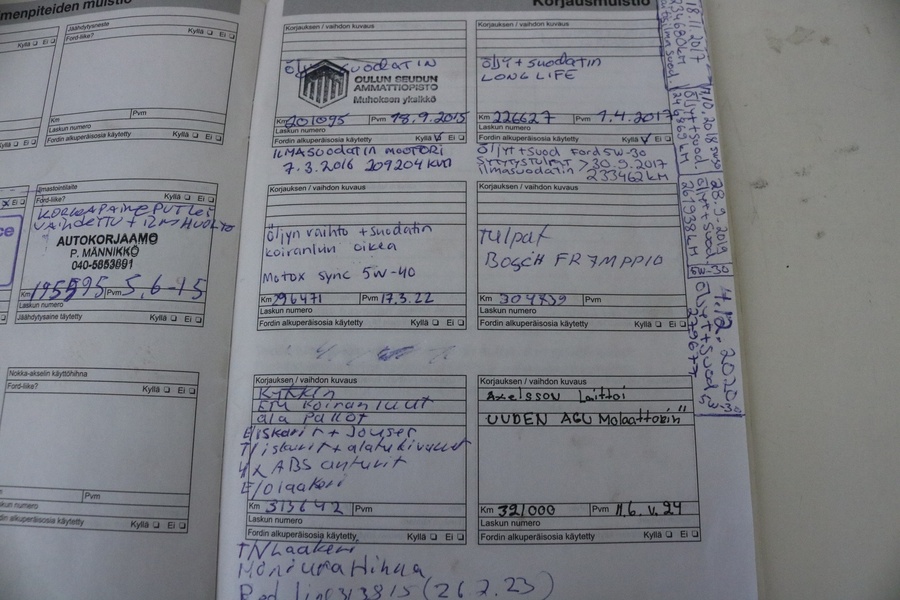 menpiteiden muistio
Jäähdytysneste
Ford-liike?
Kyllä ❑ Ei ❑
Km
Pvm
Laskun numero
Fordin alkuperäisosia käytetty
Kyllä ❑ Ei ❑
Ilmastointilaite
Ford-liike?
Kyllä ❑ Ei ❑
VAIHDETTU + 12
AUTOKORJAAMO
P. MÄNNIKKÖ
040-5853891
Km 195595 Pvm 5.6-15
Laskun numero
Jäähdytysaine täytetty
Kyllä ❑ Ei ❑
Nokka-akselin käyttöhihna
Ford-liike?
Kyllä ❑ Ei ❑
Pvm
Laskun numero
Fordin alkuperäisosia käytetty
Kyllä ❑ Ei ❑
Korjausmuistio
Korjauksen / vaihdon kuvaus
OULUN SEUDUN
AMMATTIOPISTO
Muhoksen yksikkö
Km 201095 Pvm 18.9.2015
Laskun numero
Fordin alkuperäisosia käytetty
Kyllä ❑ Ei ❑
ILMASUODATIN MOOTTORI
7.3.2016 209204 km
Korjauksen / vaihdon kuvaus
ÖLJY + suodatin
LONG LIFE
Km 226627 Pvm 1.4.2017
Laskun numero
Fordin alkuperäisosia käytetty
Kyllä ❑ Ei ❑
Öljyt + Suod Ford 5W-30
> 30.9.2017
Ilmasuodatin 233462 km
Korjauksen / vaihdon kuvaus
Öljyn vaihto + suodatin
koiranluu oikea
Motox sync 5W-40
Km 296471 Pvm 17.3.22
Laskun numero
Fordin alkuperäisosia käytetty
Kyllä ❑ Ei ❑
Korjauksen / vaihdon kuvaus
Tulpat
BOSCH FR7MPP10
Km Pvm
Laskun numero
Fordin alkuperäisosia käytetty
Kyllä ❑ Ei ❑
Korjauksen / vaihdon kuvaus
Kytkin
ETU Koiranluut
ala Pallot
E/iskarit + Jouset
4x ABS anturit
E/Olaakeri
Km 313642 Pvm
Laskun numero
Fordin alkuperäisosia käytetty
Kyllä ❑ Ei ❑
Moniurahihna
Red line 313815 (26.2.23)
Korjauksen / vaihdon kuvaus
Axelsson Laittoi
UUDEN AGU Molaattorin"
Km 321000 Pvm 11.6.v.24
Laskun numero
Fordin alkuperäisosia käytetty
Kyllä ❑ Ei ❑
18.11.2017
234680km
Öljyt + Suod.
28.9.2019
Öljyt + Suod.
261938 km
5W-30
4.12.2020
Öljyt + Suod 5W-30
279677